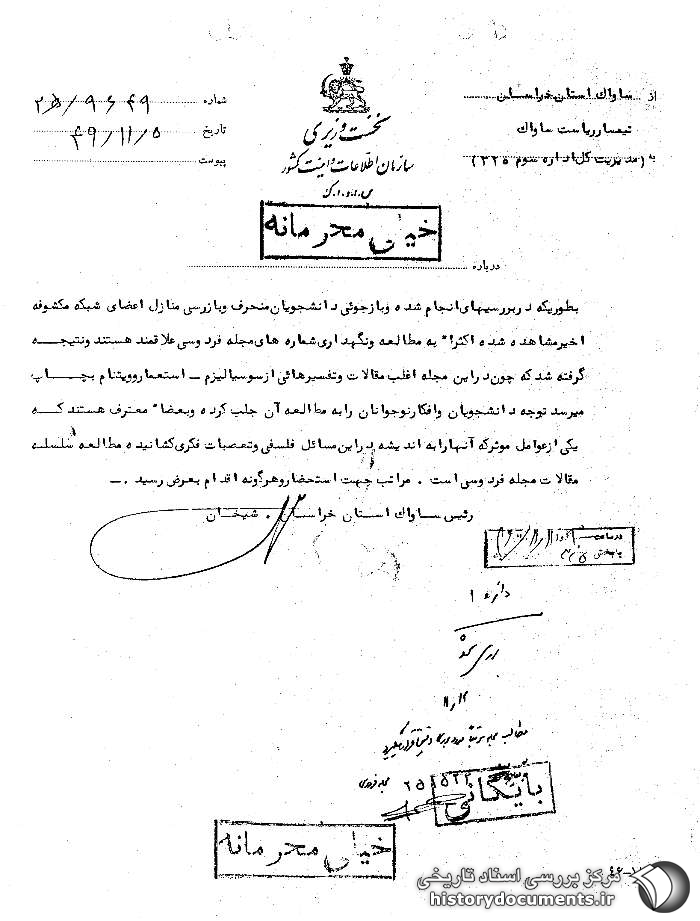 از ساواک استان خراسان
به تیمسار ریاست ساواک
(مدیریت کل اداره سوم ۳۲۵)
نخست وزیری
سازمان اطلاعات و امنیت کشور
س.ا.و.ا.ک
شماره ۹۶۴۹/
تاریخ ۴۹/۱۱/۵
پیوست
خیلی محرمانه
درباره
بطوریکه در بررسیهای انجام شده و بازجوئی دانشجویان منحرف و بازرسی منازل اعضای شبکه مکشوفه
اخیر مشاهده شده اکثرا" به مطالعه و نگهداری شماره های مجله فردوسی علاقمند هستند و نتیجه
گرفته شد که چون در این مجله اغلب مقالات و تفسیرهائی از سوسیالیزم ـ استعمار و ویتنام بچاپ
میرسد توجه دانشجویان و افکار نوجوانان را به مطالعه آن جلب کرده و بعضا" معترف هستند که
یکی از عوامل موثر که آنها را به اندیشه در این مسائل فلسفی و تعصبات فکری کشانیده مطالعه سلسله
مقالات مجله فردوسی است . مراتب جهت استحضار و هرگونه اقدام بعرض رسید . ـ
رئیس ساواک استان خراسان . شیخان
در ساعت
دائره ۱
مطالب مجله مرتبا مورد بررسی دقیق قرار میگیرد
مجله فردوسی
بایگانی
خیلی محرمانه
مرکز بررسی اسناد تاریخی
historydocuments.ir